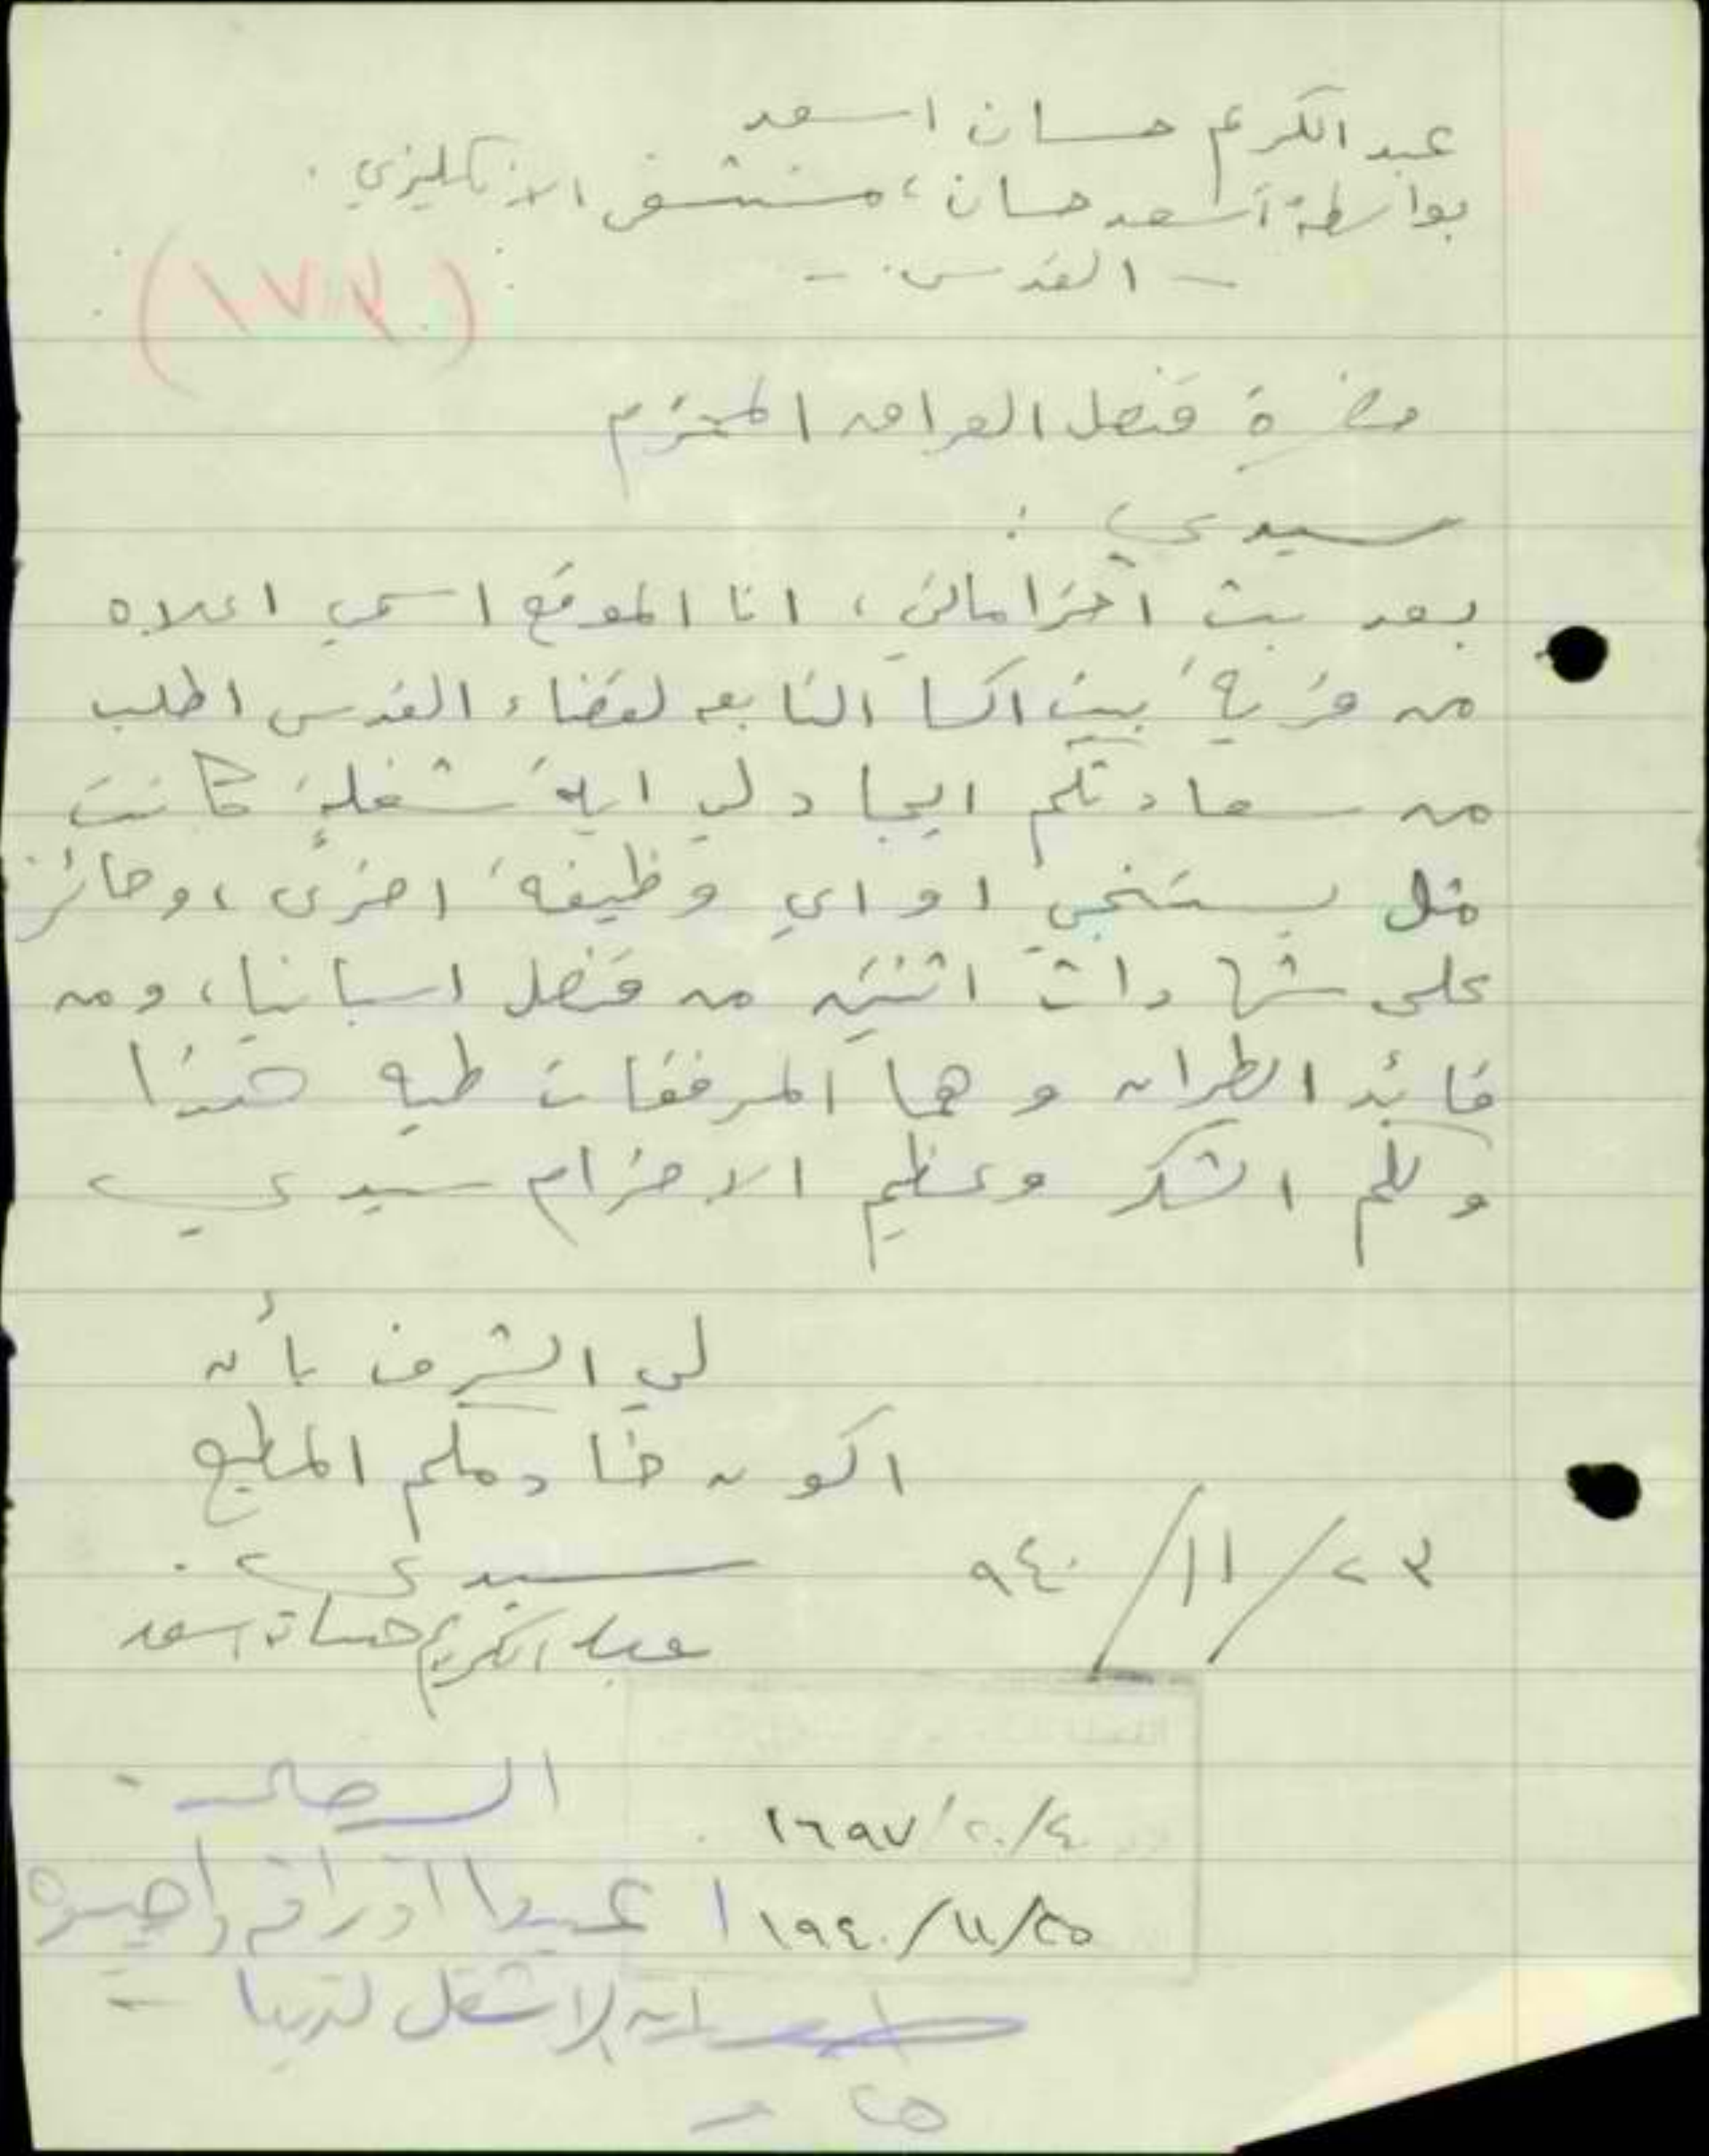 عبد الكريم حسان اسعد
بواسطة اسعد حسان، مستشفى الانكليزي.
- القدس -
(١٧٣٠)
حضرة قنصل العراق المحترم
سيدي :
بعد بث احتراماتي، انا الموقع اسمي اعلاه
من قرية بيت اكسا التابعه لقضاء القدس اطلب
من سعادتكم ايجاد لي اية شغلة كانت
مثل بستنجي او اي وظيفة اخرى، وحائز
على شهادات اثنين من قنصل اسبانيا، ومن
قائد الطيران وهما المرفقات طيه هذا
ولكم الشكر وعظيم الاحترام سيدي
لي الشرف بأن
اكون خادمكم المطيع
٢٣/١١/٩٤٠ سيدي.
عبد الكريم حسان اسعد
١٦٩٧/٢٠/٤
١٩٤٠/١١/٢٥
اعيدوا اوراقه واجيبوه
انه لا شغل لدينا -